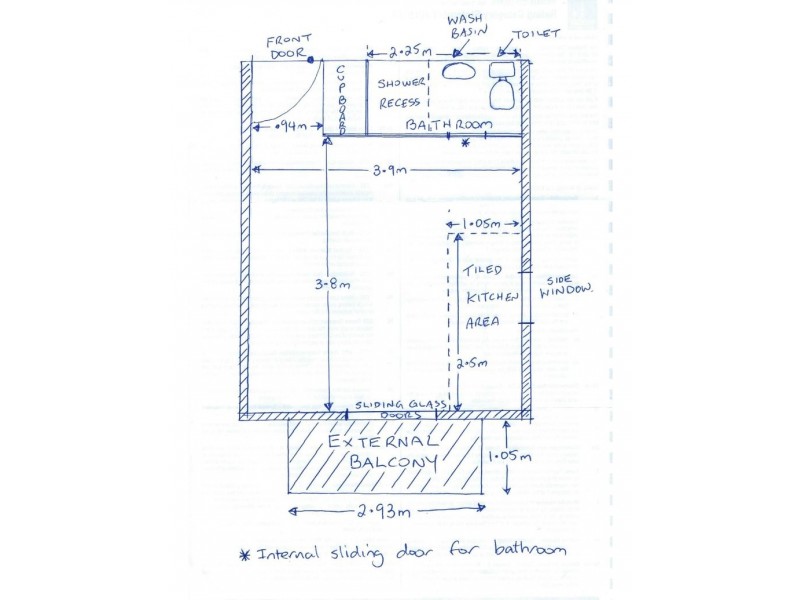 WASH
BASIN
TOILET
FRONT
DOOR
2.25m
CUPBOARD
SHOWER
RECESS
BATHROOM
.94m
*
3.9m
1.05m
3-8m
TILED
KITCHEN
AREA
SIDE
WINDOW.
2.5m
SLIDING GLASS
DOORS
EXTERNAL
BALCONY
1.05m
2.93m
* Internal sliding door for bathroom